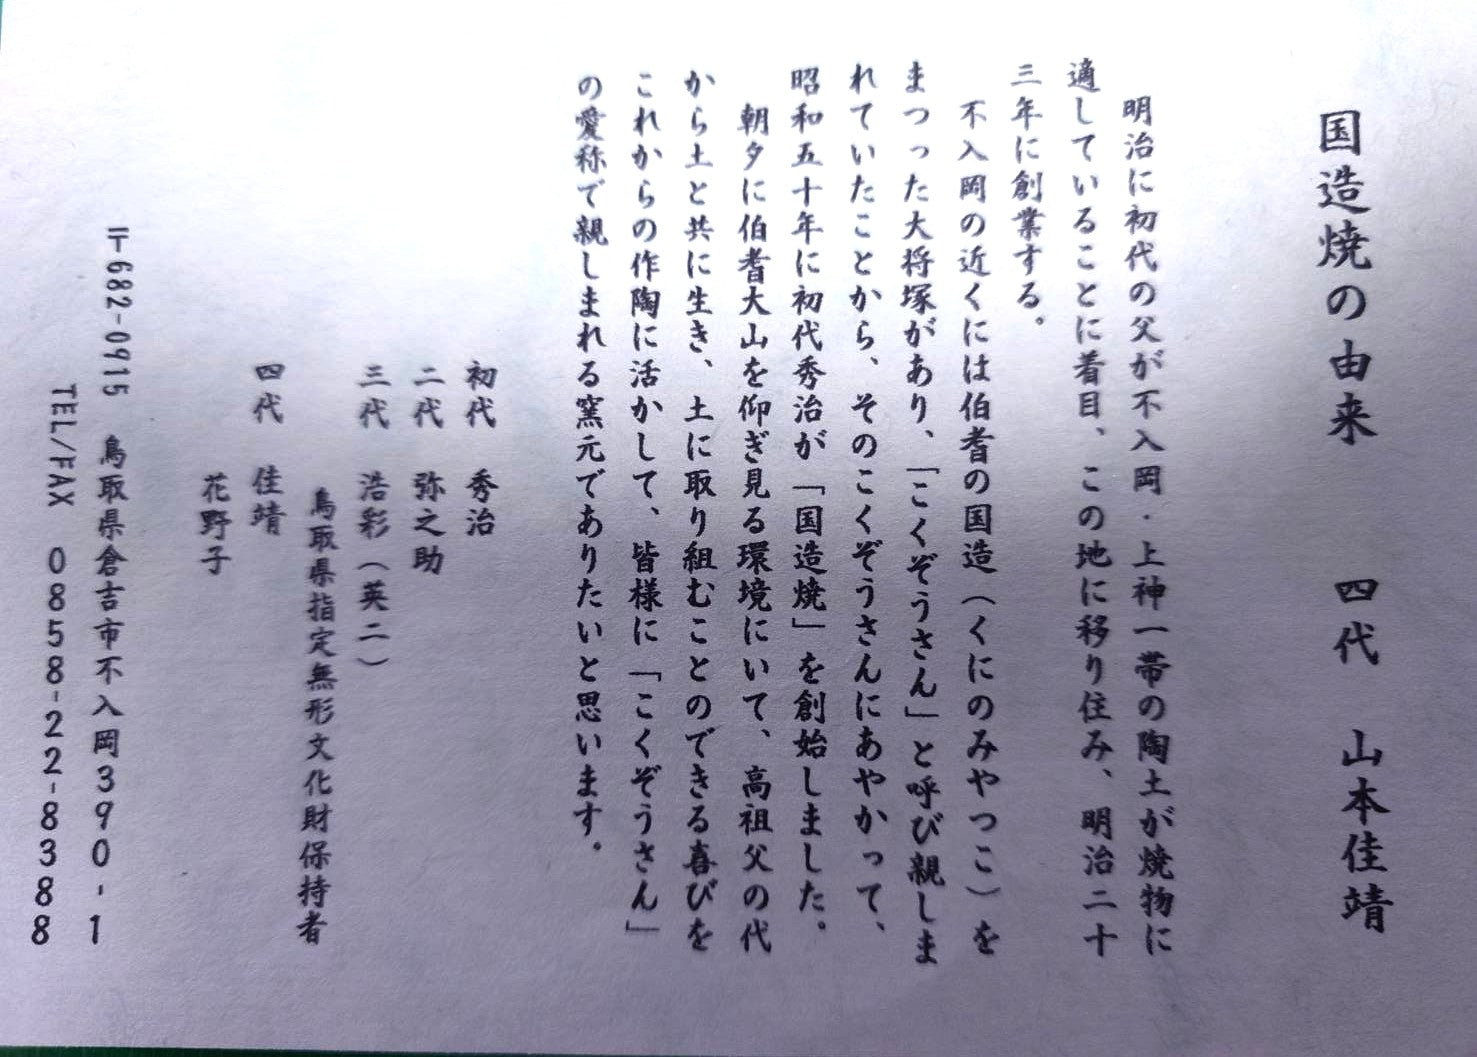 国造焼の由来　四代　山本佳靖
明治に初代の父が不入岡・上神一帯の陶土が焼物に
適していることに着目、この地に移り住み、明治二十
三年に創業する。
不入岡の近くには伯耆の国造（くにのみやつこ）を
まつった大将塚があり、「こくぞうさん」と呼び親しま
れていたことから、そのこくぞうさんにあやかって、
昭和五十年に初代秀治が「国造焼」を創始しました。
朝夕に伯耆大山を仰ぎ見る環境にいて、高祖父の代
から土と共に生き、土に取り組むことのできる喜びを
これからの作陶に活かして、皆様に「こくぞうさん」
の愛称で親しまれる窯元でありたいと思います。
初代　秀治
二代　弥之助
三代　浩彩（英二）
鳥取県指定無形文化財保持者
四代　佳靖
花野子
〒682-0915　鳥取県倉吉市不入岡390-1
TEL/FAX　0858-22-8388